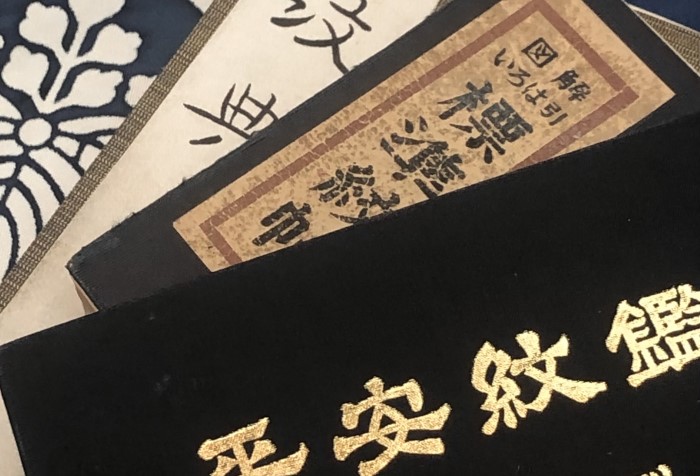 紋典
図解
いろは引
標準紋
平安紋鑑